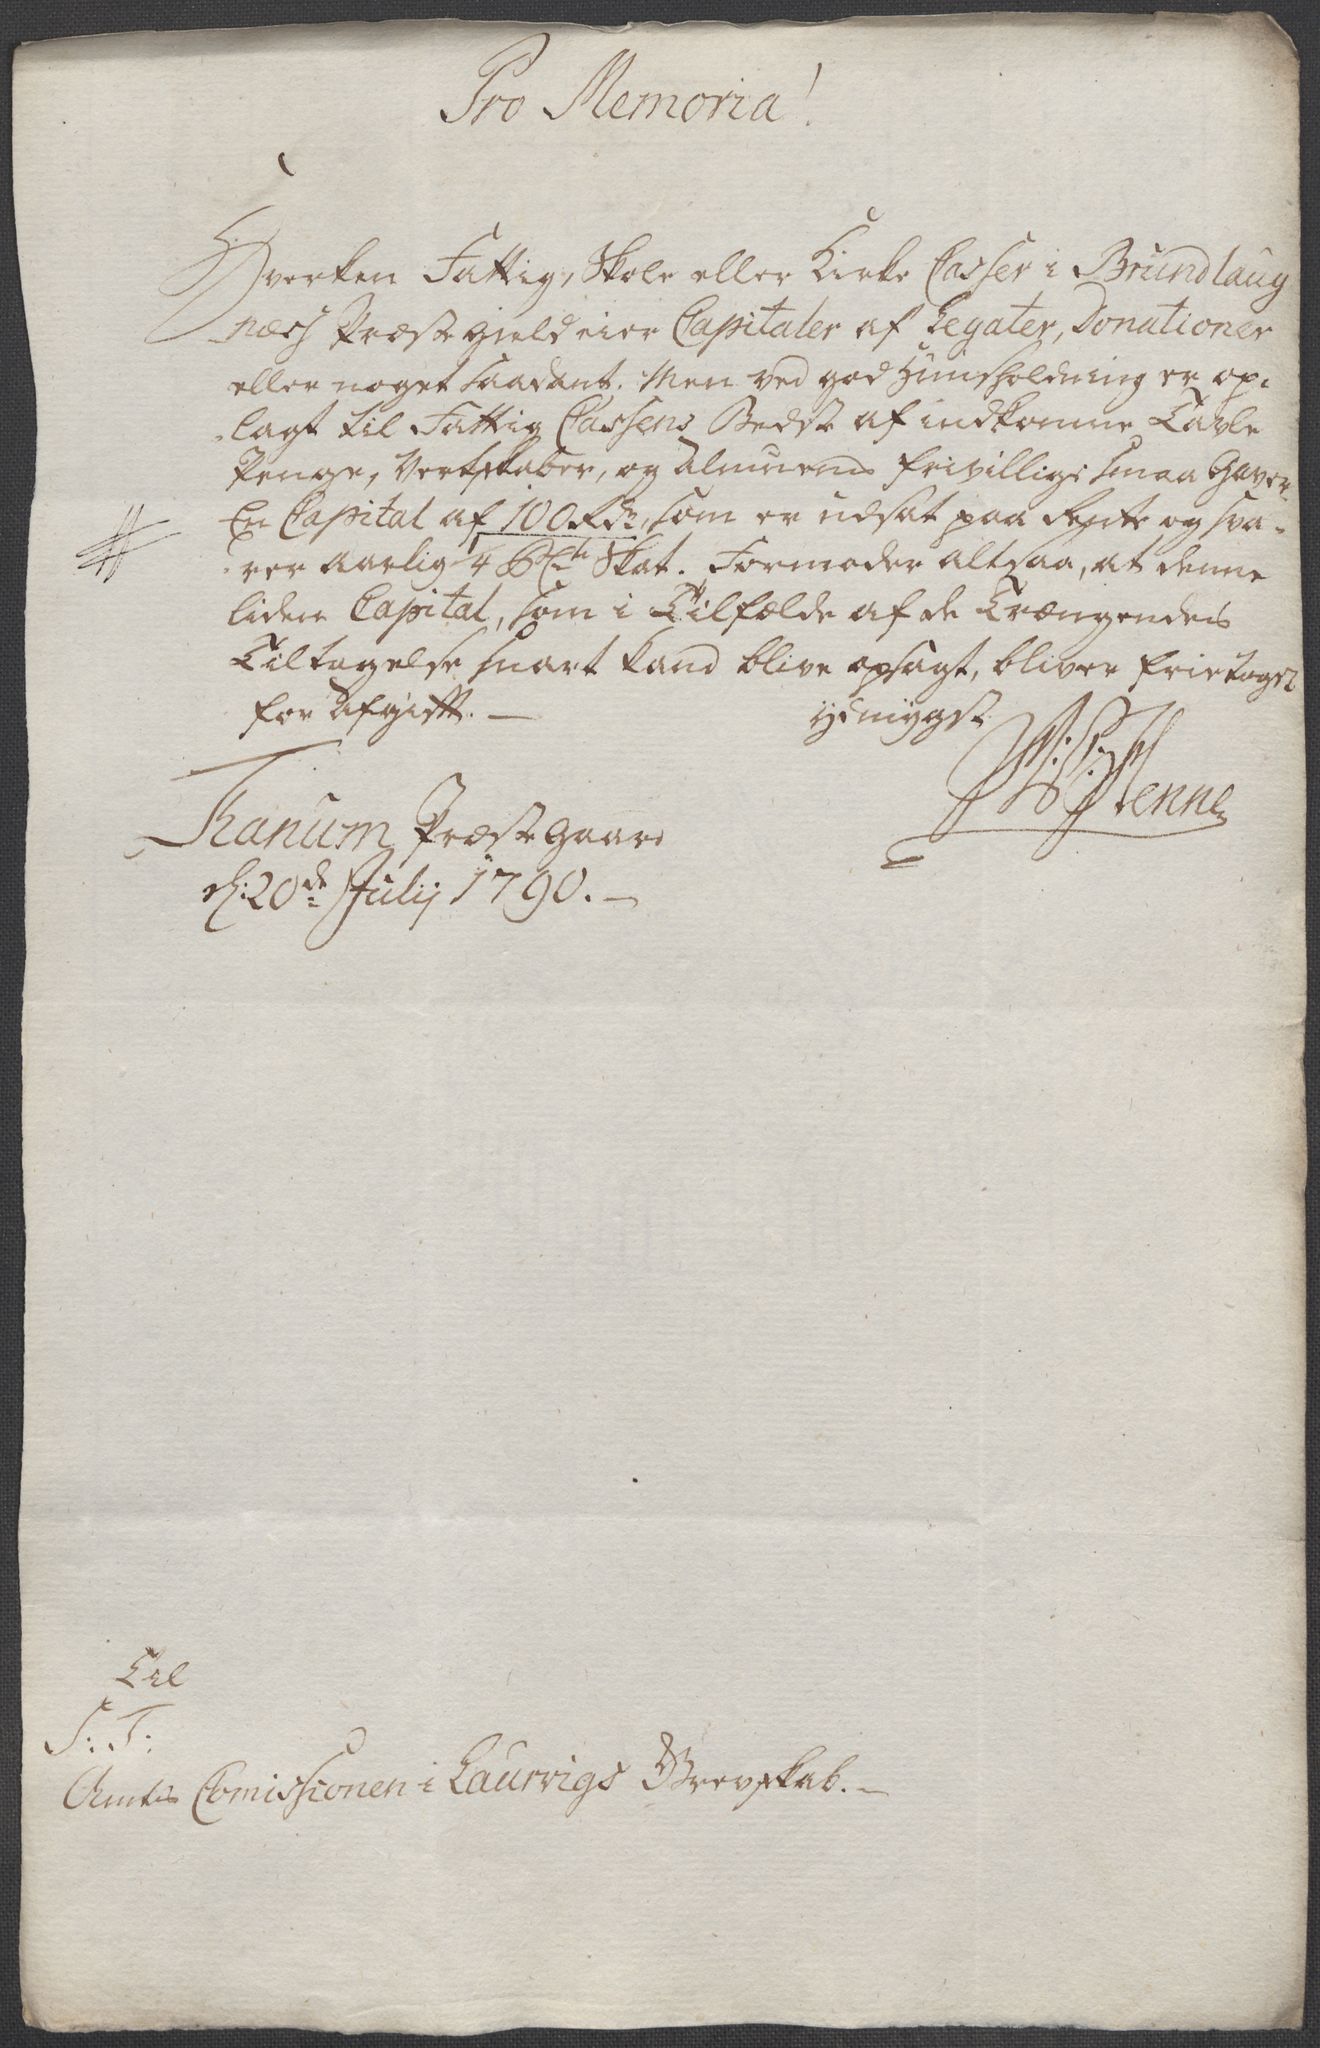 Pro Memoria!
Hverken Fattig, Skole eller Kirke Casser i Brundlaug
næss Præstegield eier Capitaler af Legater, Donationer
eller noget saadant. Men ved god Huusholdning er op-
lagt til Fattig Cassens Bedste af indkomne Tavle
Penge, Vertskaber, og Almuens frivillige smaa Gaver
En Capital af 100 Rdr, som er udsat paa Rente og sva-
rer aarlig 4 Skat. Formoder altsaa, at denne
liden Capital, som i Tilfælde af de Trængendes
Tiltagelse snart kand blive opsagt, bliver frietaget
for Afgift. —
ydmygst
Wenne
Thanum Præstegaard
d: 20de Julij 1790. —
Til
S: T:
Amts Comissionen i Laurvigs Grevskab. —